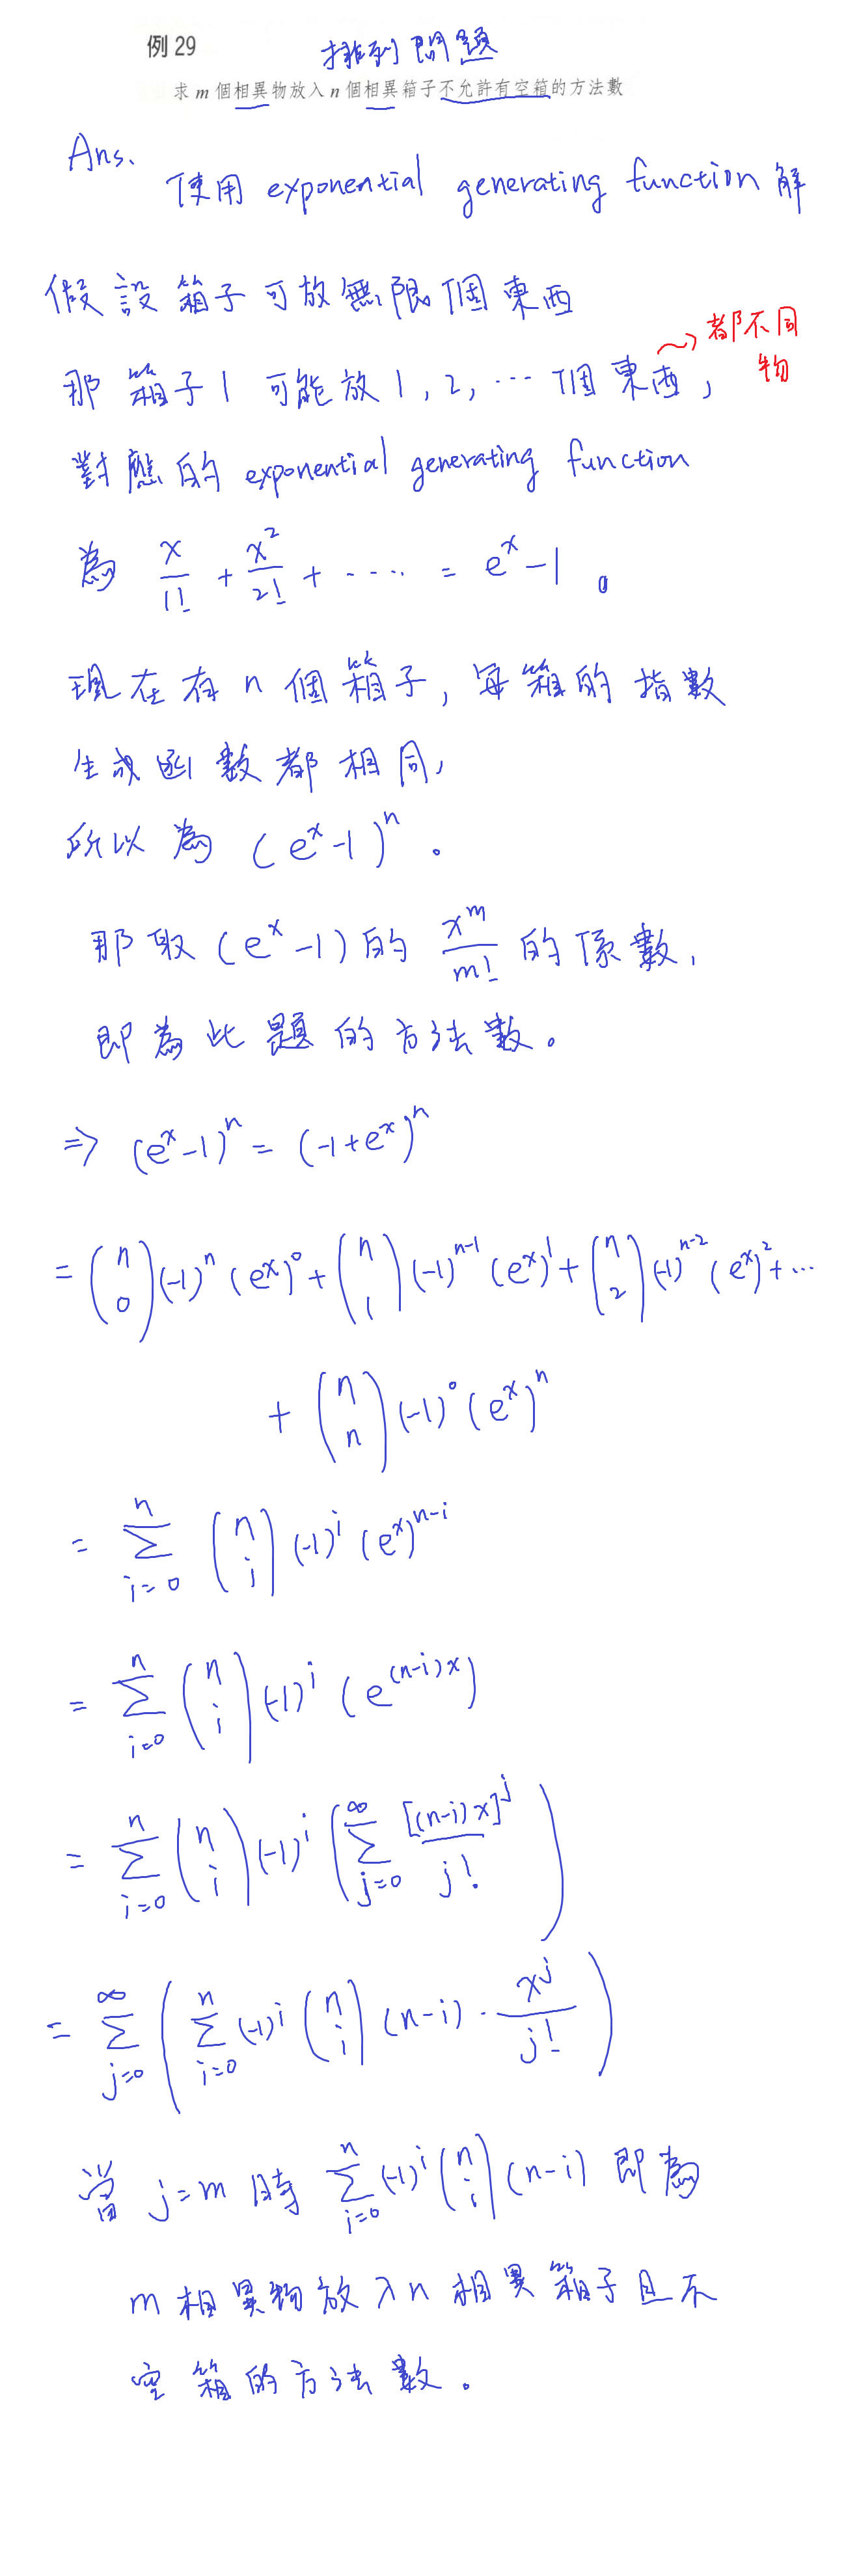 例 29
排列問題
求 m 個相異物放入 n 個相異箱子不允許有空箱的方法數
Ans.
使用 exponential generating function 解
假設箱子可放無限個東西
那箱子1 可能放1, 2, ⋯ 個東西,
→都不同物
對應的 exponential generating function
為 x/1! + x^2/2! + ⋯⋯ = e^x - 1 。
現在有 n 個箱子, 每箱的指數
生成函數都相同,
所以為 (e^x - 1)^n 。
那取 (e^x - 1) 的 x^m/m! 的係數,
即為此題的方法數。
⇒ (e^x - 1)^n = (-1 + e^x)^n
= (n 0)(-1)^n (e^x)^0 + (n 1)(-1)^{n-1} (e^x)^1 + (n 2)(-1)^{n-2} (e^x)^2 + ⋯
+ (n n)(-1)^0 (e^x)^n
= Σ_{i=0}^{n} (n i)(-1)^i (e^x)^{n-i}
= Σ_{i=0}^{n} (n i)(-1)^i (e^{(n-i)x})
= Σ_{i=0}^{n} (n i)(-1)^i (Σ_{j=0}^{∞} [(n-i)x]^j / j!)
= Σ_{j=0}^{∞} (Σ_{i=0}^{n} (-1)^i (n i)(n-i) · x^j / j!)
當 j=m 時 Σ_{i=0}^{n} (-1)^i (n i)(n-i) 即為
m 相異物放入 n 相異箱子且不
空箱的方法數。